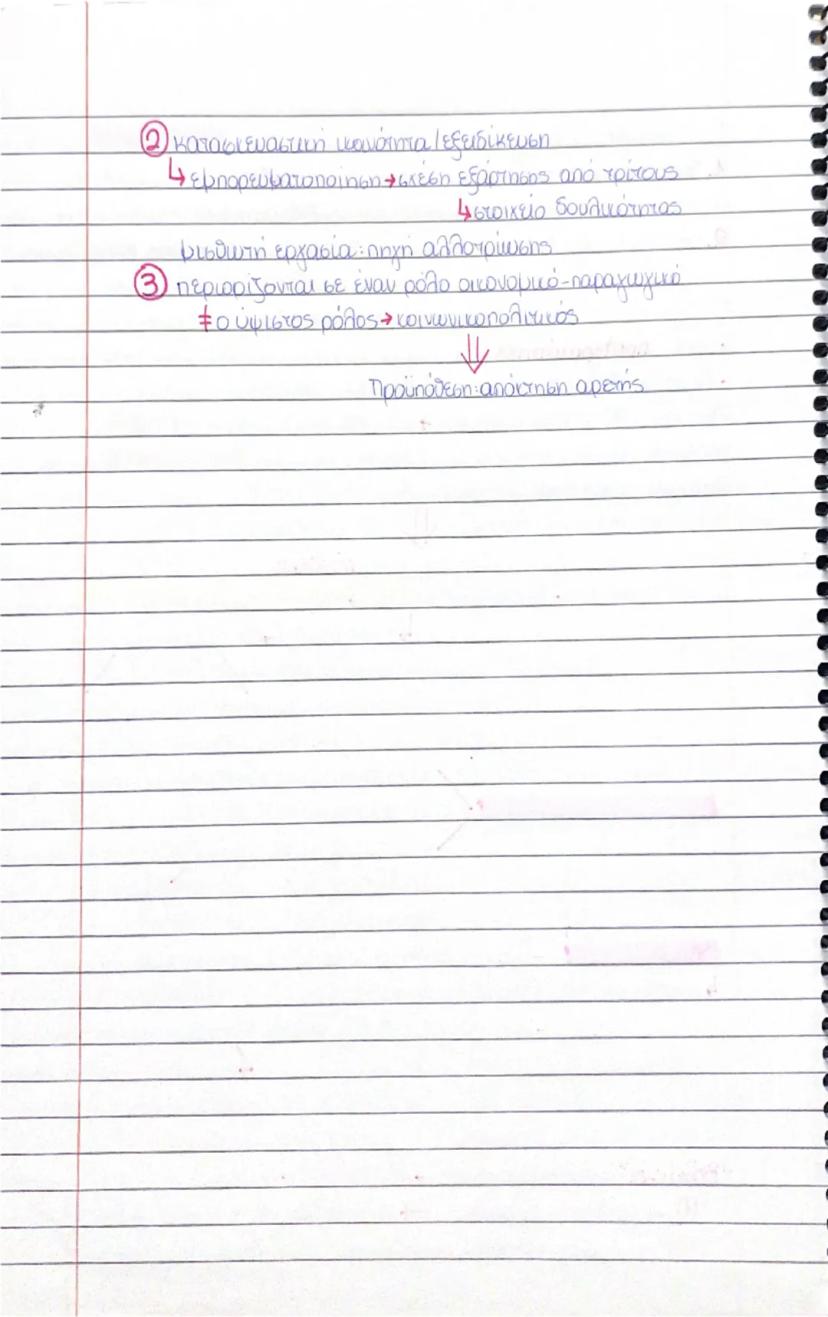 ② κατασκευαστική ικανότητα/εξειδίκευση
↳ εμπορευματοποίηση→σχέση εξάρτησης από τρίτους
↳στοιχείο δουλικότητας
μισθωτή εργασία: πηγή αλλοτρίωσης
③ περιορίζονται σε έναν ρόλο οικονομικό-παραγωγικό
≠ ο ύψιστος ρόλος→κοινωνικοπολιτικός
⇓
Προϋπόθεση: απόκτηση αρετής